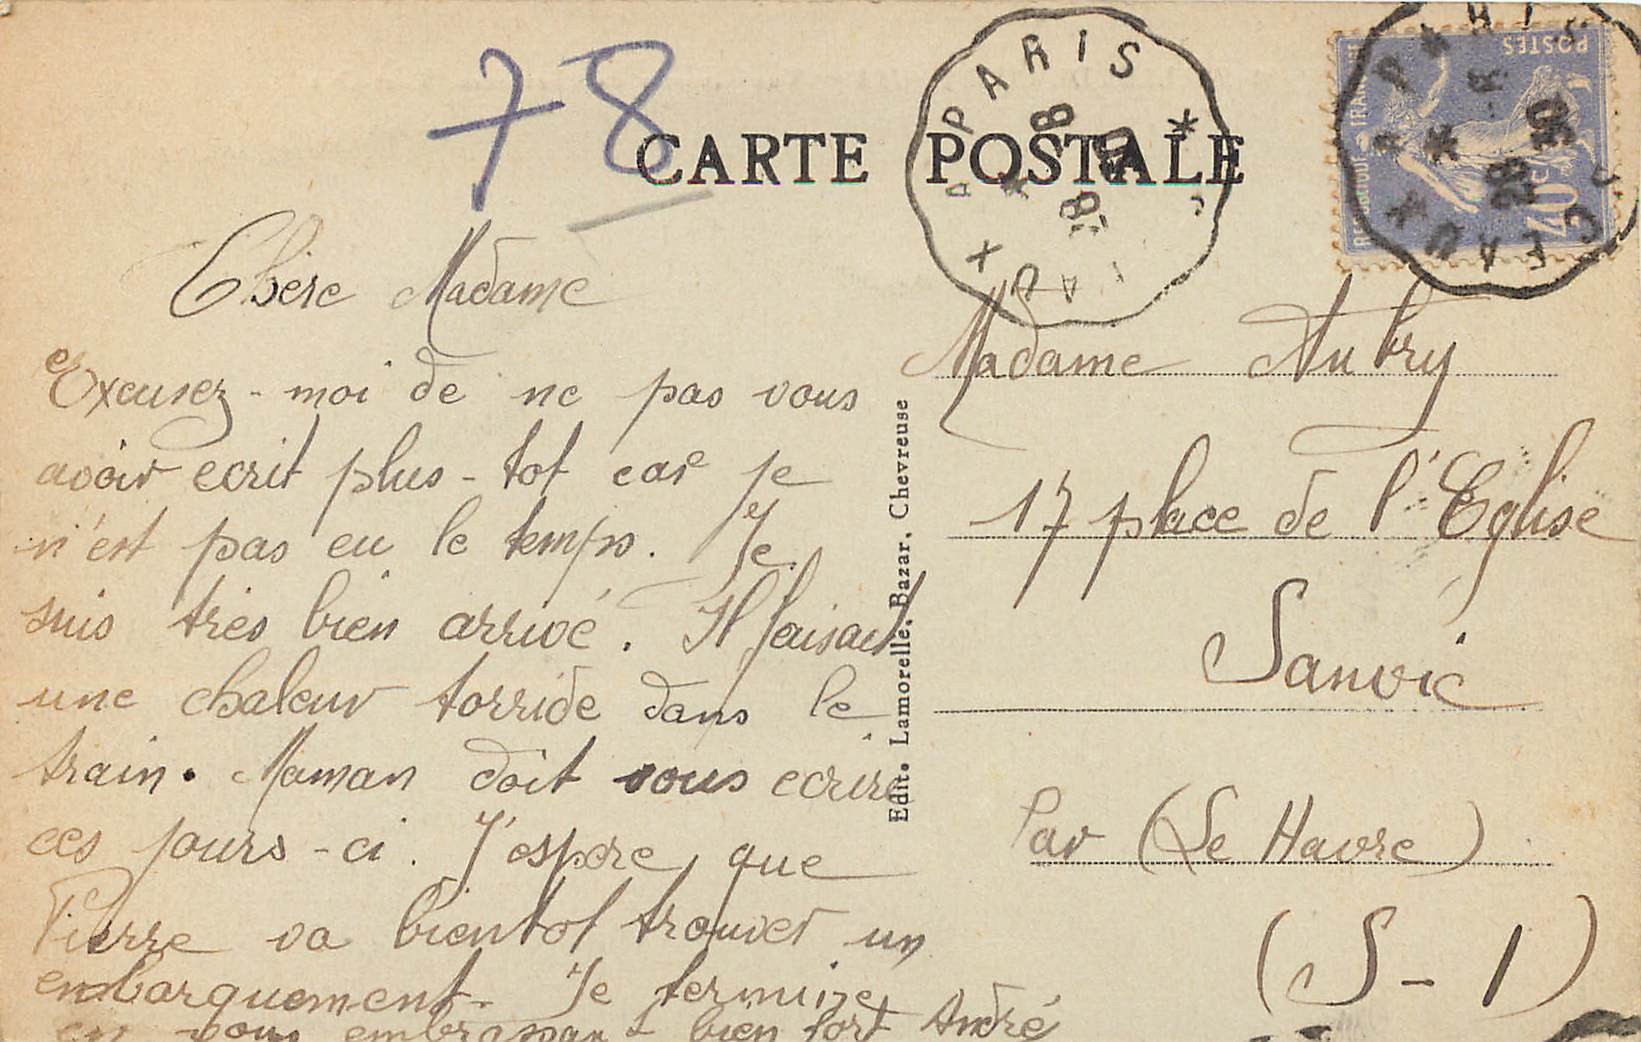 78
CARTE POSTALE
PARIS
POSTES
40c
Chère Madame
Excusez-moi de ne pas vous
avoir ecrit plus-tot car je
n'est pas eu le temps. Je
suis très bien arrivé. Il faisait
une chaleur torride dans le
train. Maman doit vous ecrire
ces jours-ci. J'espere que
Pierre va bientot trouver un
embarquement. Je termine
en vous embrassant bien fort André
Edit. Lamorelle, Bazar, Chevreuse
Madame Aubry
17 place de l'Eglise
Sanvic
Par (Le Havre)
(S-I)